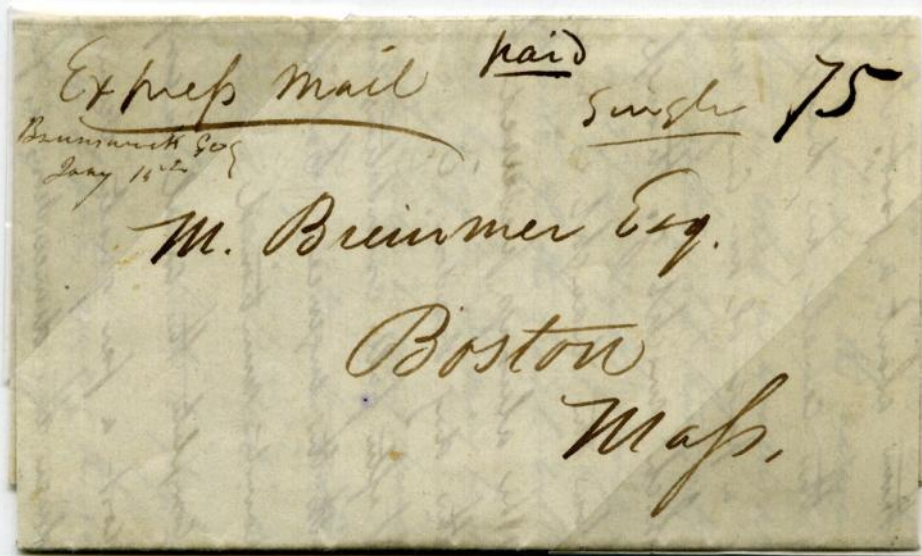 Express Mail paid
Single 75
Brunswick Geo
Jany 15th
M. Brimmer Esq.
Boston
Mass.